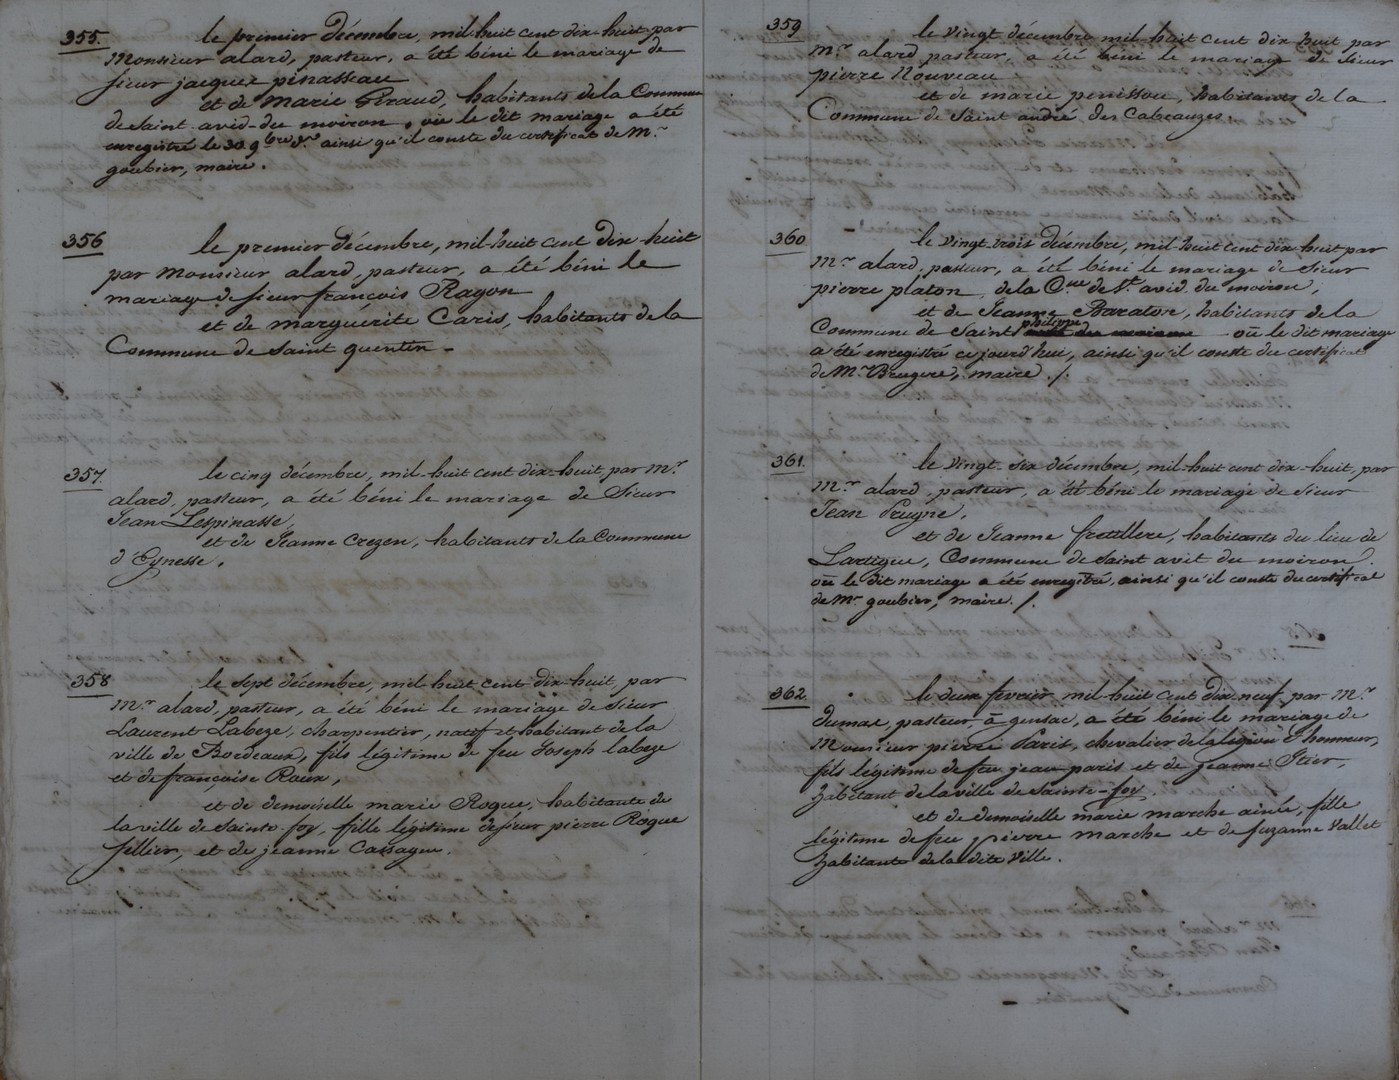 355. le premier décembre, mil-huit cent dix-huit par
Monsieur alard, pasteur, a été béni le mariage de
sieur jacques pinasseau
et de Marie Giraud, habitants de la Commune
de Saint avid-du moiron, où le dit mariage a été
enregistré le 30 9bre dr ainsi qu'il conste du certificat de Mr
goubier, maire.
356 le premier décembre, mil-huit cent dix-huit
par Monsieur alard, pasteur, a été béni le
mariage de sieur françois Ragon
et de marguérite Caris, habitants de la
Commune de Saint quentin -
357. le cinq décembre, mil-huit cent dix-huit, par Mr
alard, pasteur, a été béni le mariage de Sieur
Jean Lespinasse,
et de Jeanne Crezen, habitants de la Commune
d'Eynesse.
358 le sept décembre, mil-huit cent dix-huit, par
Mr alard, pasteur, a été béni le mariage de sieur
Laurent Labeze, charpentier, natif et habitant de la
ville de Bordeaux, fils légitime de feu Joseph labeze
et de françoise Roux,
et de demoiselle marie Rogue, habitante de
la ville de Sainte-foy, fille légitime de sieur pierre Rogue
sellier, et de jeanne Cassagne.
359 le vingt décembre mil-huit cent dix huit par
Mr alard, pasteur, a été béni le mariage de Sieur
pierre Nouveau
et de marie penisson, habitants de la
Commune de Saint andré des Cabeauzes
360 le vingt-trois décembre, mil-huit cent dix-huit par
Mr alard, pasteur, a été béni le mariage de Sieur
pierre platon, de la Cne de St avid du moiron,
et de Jeanne Baraton, habitants de la
Commune de Saint philippe où le dit mariage
a été enregistré ce jourd'hui, ainsi qu'il conste du certificat
de Mr Brugere, maire ./.
361. le vingt-six décembre, mil-huit cent dix-huit, par
Mr alard, pasteur, a été béni le mariage de sieur
Jean Prugne,
et de Jeanne fretillere, habitants du lieu de
Lartigue, Commune de Saint avit du moiron
où le dit mariage a été enregistré, ainsi qu'il conste du certificat
de Mr goubier, maire ./.
362. le deux fevrier mil-huit cent dix neuf, par Mr
dumas, pasteur à gensac, a été béni le mariage de
Monsieur pierre Paris, chevalier de la légion d'honneur,
fils légitime de feu jean paris et de jeanne Itier,
habitant de la ville de Sainte-foy,
et de demoiselle marie marche ainée, fille
légitime de feu pierre marche et de suzanne Vallet
habitante de la dite ville.